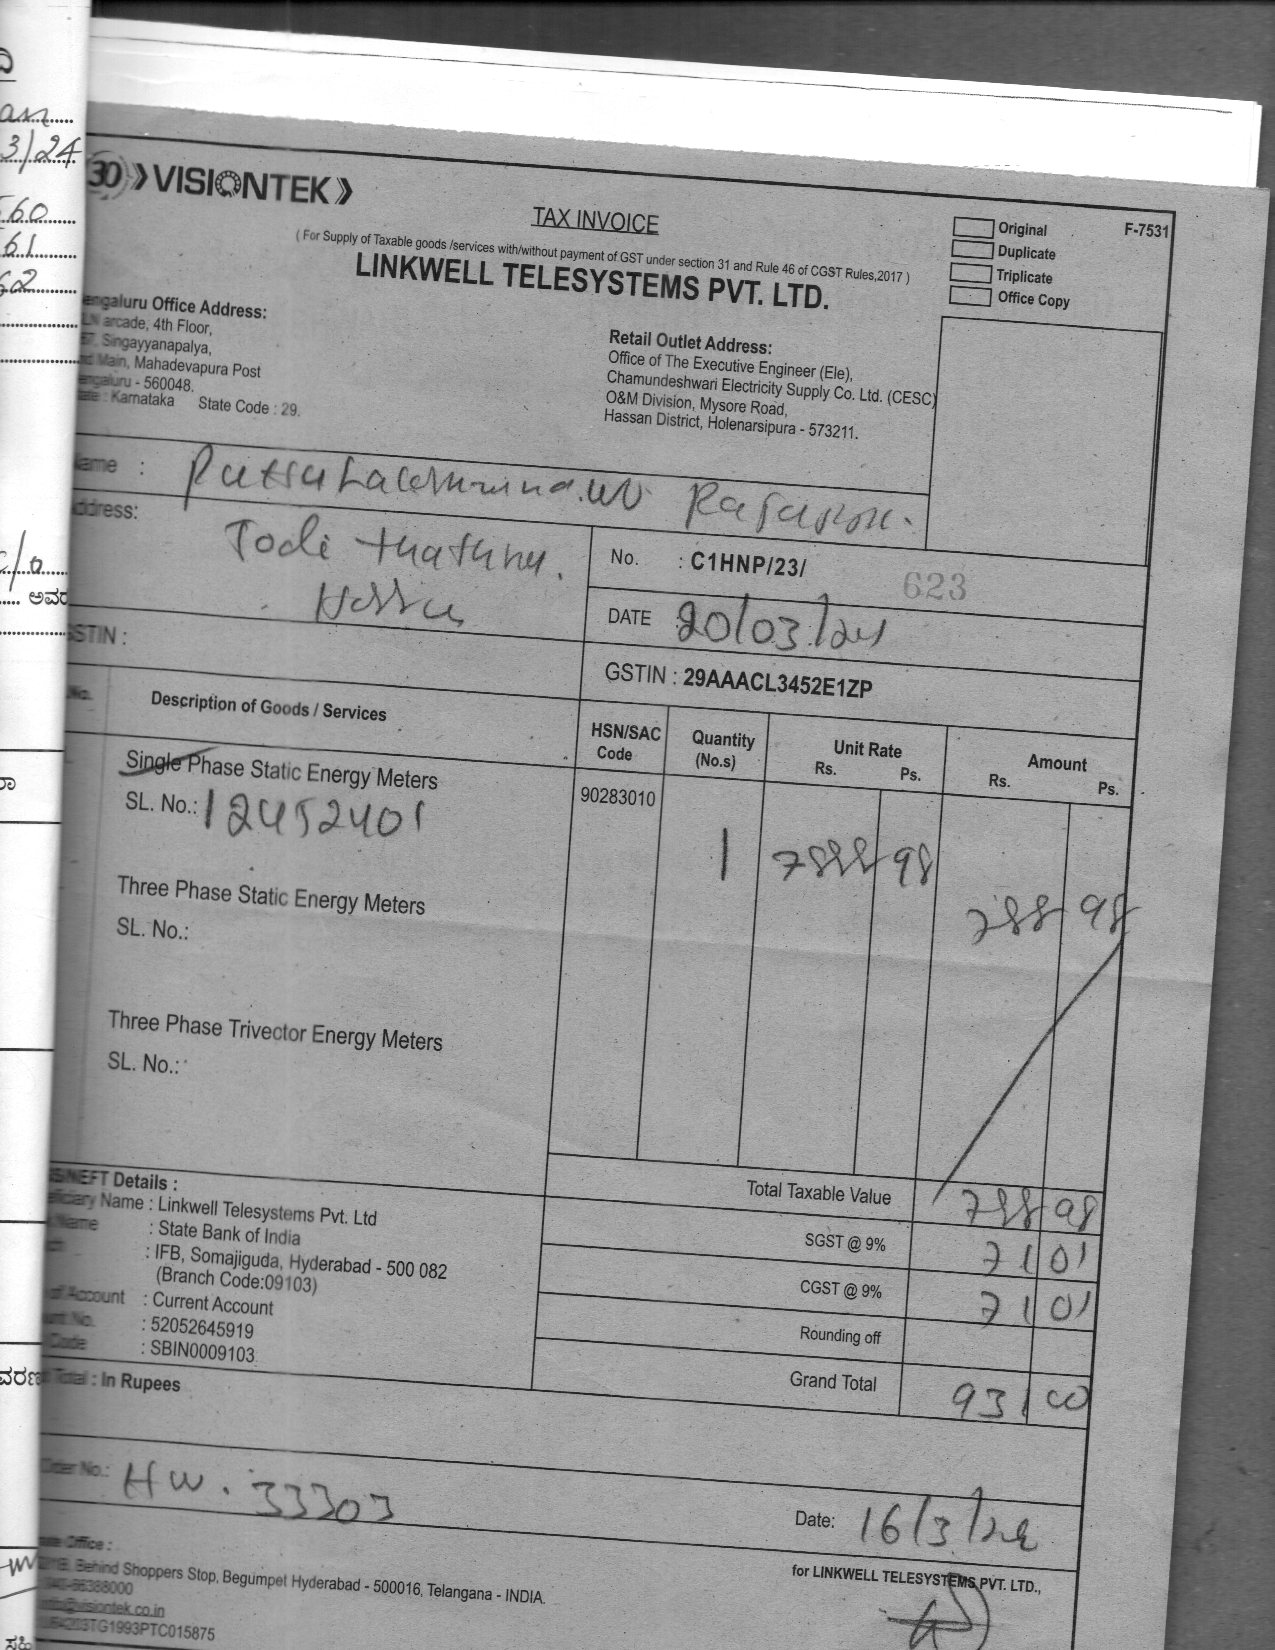 an
3/24
60
61
62
c/o
ಅವರ
30 VISIONTEK
TAX INVOICE
( For Supply of Taxable goods /services with/without payment of GST under section 31 and Rule 46 of CGST Rules,2017 )
LINKWELL TELESYSTEMS PVT. LTD.
Original
Duplicate
Triplicate
Office Copy
F-7531
engaluru Office Address:
LN arcade, 4th Floor,
Singayyanapalya,
Main, Mahadevapura Post
engaluru - 560048.
ate : Karnataka State Code : 29.
Retail Outlet Address:
Office of The Executive Engineer (Ele),
Chamundeshwari Electricity Supply Co. Ltd. (CESC)
O&M Division, Mysore Road,
Hassan District, Holenarsipura - 573211.
ame :
ddress:
No. : C1HNP/23/ 623
DATE 20/03/24
GSTIN :
GSTIN : 29AAACL3452E1ZP
No. Description of Goods / Services HSN/SAC Code Quantity (No.s) Unit Rate Rs. Ps. Amount Rs. Ps.
Single Phase Static Energy Meters 90283010
SL. No.: 12452401 1 788 98 788 98
Three Phase Static Energy Meters
SL. No.:
Three Phase Trivector Energy Meters
SL. No.:
Total Taxable Value 788 98
SGST @ 9% 71 01
CGST @ 9% 71 01
Rounding off
Grand Total 931 00
S/NEFT Details :
ficiary Name : Linkwell Telesystems Pvt. Ltd
Name : State Bank of India
: IFB, Somajiguda, Hyderabad - 500 082
(Branch Code:09103)
of Account : Current Account
unt No. : 52052645919
Code : SBIN0009103
Total : In Rupees
ವರಣ
Order No.: HW. 33303
Date: 16/3/24
ate Office :
Behind Shoppers Stop, Begumpet Hyderabad - 500016, Telangana - INDIA.
040-66388000
@visiontek.co.in
TG1993PTC015875
for LINKWELL TELESYSTEMS PVT. LTD.,
ಸಹಿ